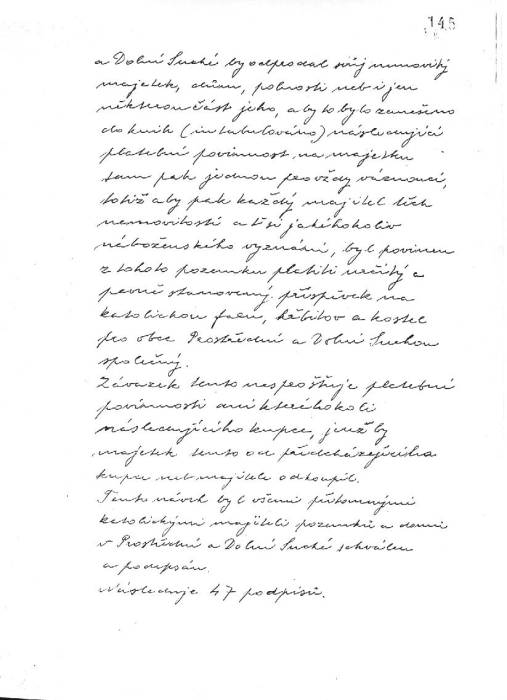 145
a Dolní Suché by odprodal svůj nemovitý
majetek, dům, polnosti neb i jen
některou část jeho, aby to bylo zaneseno
do knih (intabulováno) následující
platební povinnost na majetku
tam pak jednou pro vždy váznoucí,
totiž aby pak každý majitel těch
nemovitostí a t si jakéhokoliv
náboženského vyznání, byl povinen
z tohoto pozemku platiti určitý a
pevně stanovený příspěvek na
katolickou faru, hřbitov a kostel
pro obce Prostřední a Dolní Suchou
společný.
Závazek tento nesprošťuje platební
povinnosti ani kteréhokoli
následujícího kupce, jenž by
majetek tento od předcházejícího
kupce neb majitele odkoupil.
Tento návrh byl všemi přítomnými
katolickými majiteli pozemků a domů
v Prostřední a Dolní Suché schválen
a podepsán.
Následuje 47 podpisů.